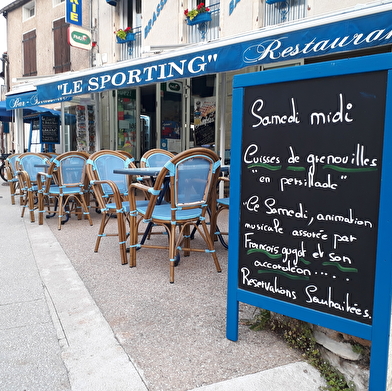 RIE
PMU
BRASS
"LE SPORTING"
Restaurant
Bar -
Samedi midi
Cuisses de grenouilles
"en persillade"
Ce Samedi, animation
musicale assurée par
François gugot et son
accordéon.....
Reservations Souhaitées.